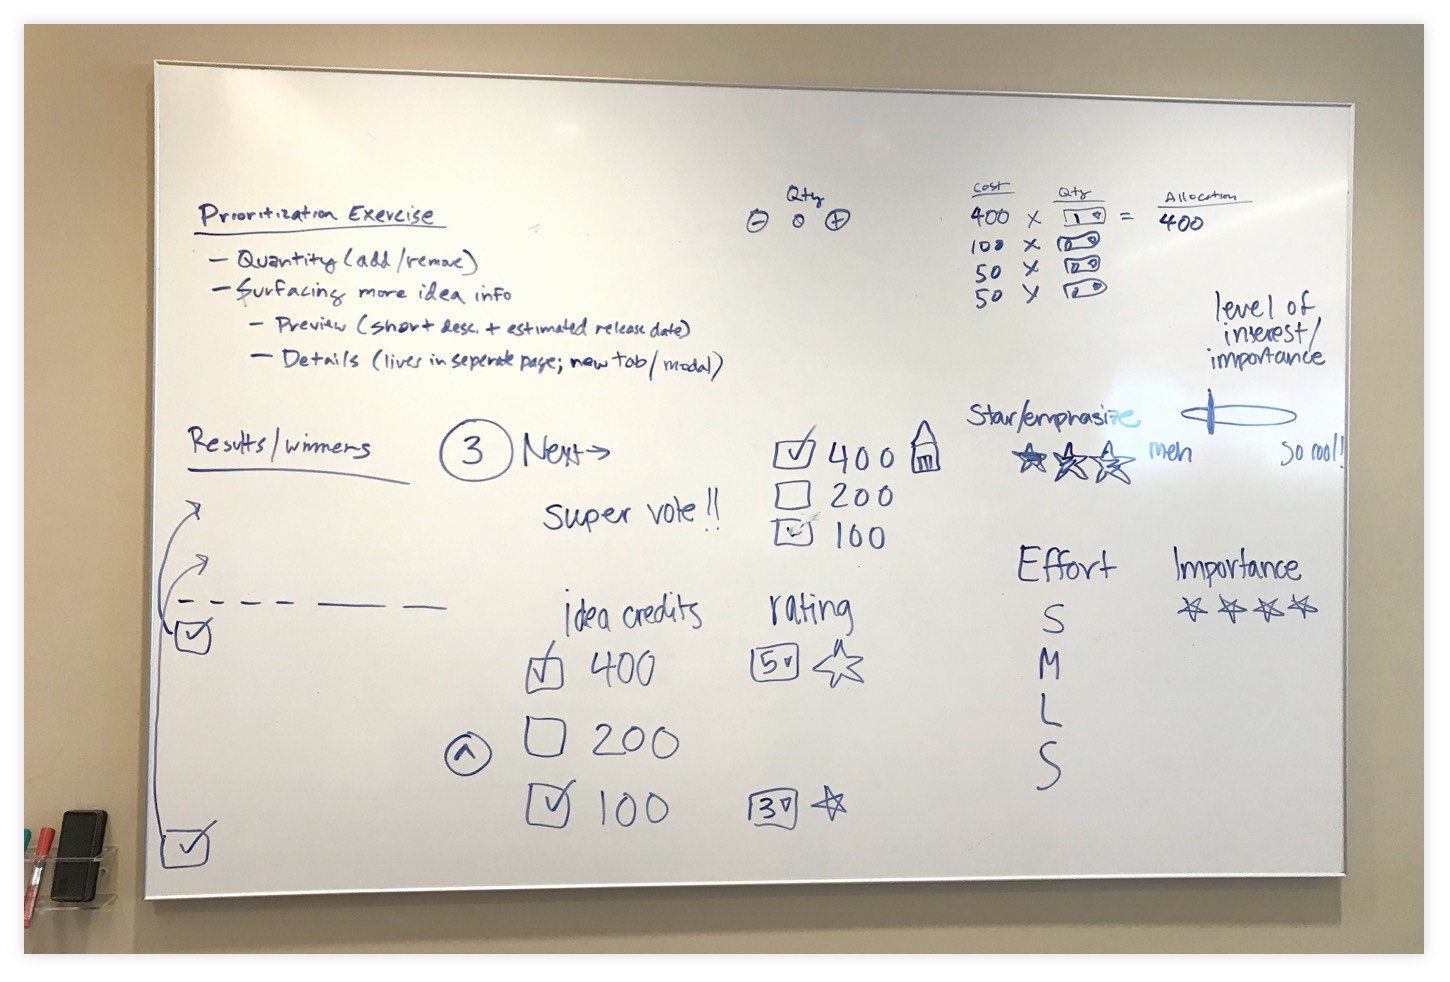 Prioritization Exercise
- Quantity (add/remove)
- Surfacing more idea info
- Preview (short desc. + estimated release date)
- Details (lives in seperate page; new tab/modal)
Qty
- 0 +
Cost Qty Allocation
400 x 1 = 400
100 x
50 x 2
50 x 2
level of
interest/
importance
meh so cool!
Star/emphasize
Results/winners
3 Next →
super vote!!
400
200
100
idea credits rating
400 5
200
100 3
Effort Importance
S
M
L
S